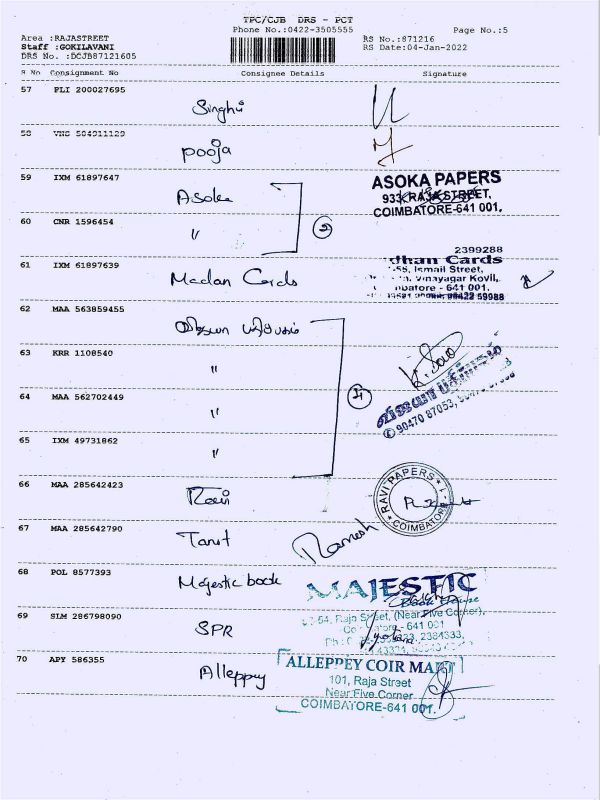 TPC/CJB DRS - PCT
Phone No.:0422-3505555
Page No.:5
Area :RAJASTREET
RS No.:871216
Staff :GOKILAVANI
RS Date:04-Jan-2022
DRS No. :DCJB87121605
S No Consignment No Consignee Details Signature
57 PLI 200027695 Singhvi
58 VNS 504911129 Pooja
59 IXM 61897647 Asoka
ASOKA PAPERS
933, RAJA STREET,
COIMBATORE-641 001.
60 CNR 1596454 "
2399288
61 IXM 61897639 Madan Cards
dhan Cards
Ismail Street,
Vinayagar Kovil,
641 001.
98422 59988
62 MAA 563859455
63 KRR 1108540 "
விஜயா பதிப்பகம்
90470 87053,
64 MAA 562702449 "
65 IXM 49731862 "
66 MAA 285642423 Ravi
RAVI PAPERS
COIMBATORE-1
67 MAA 285642790 Tarut
Ramesh
68 POL 8577393 Majestic book
MAJESTIC
Book House
54, Raja Street, (Near Five Corner),
641 001
2384333,
69 SLM 286798090 SPR
70 APY 586355 Alleppey
ALLEPPEY COIR MART
101, Raja Street
Near Five Corner
COIMBATORE-641 001.